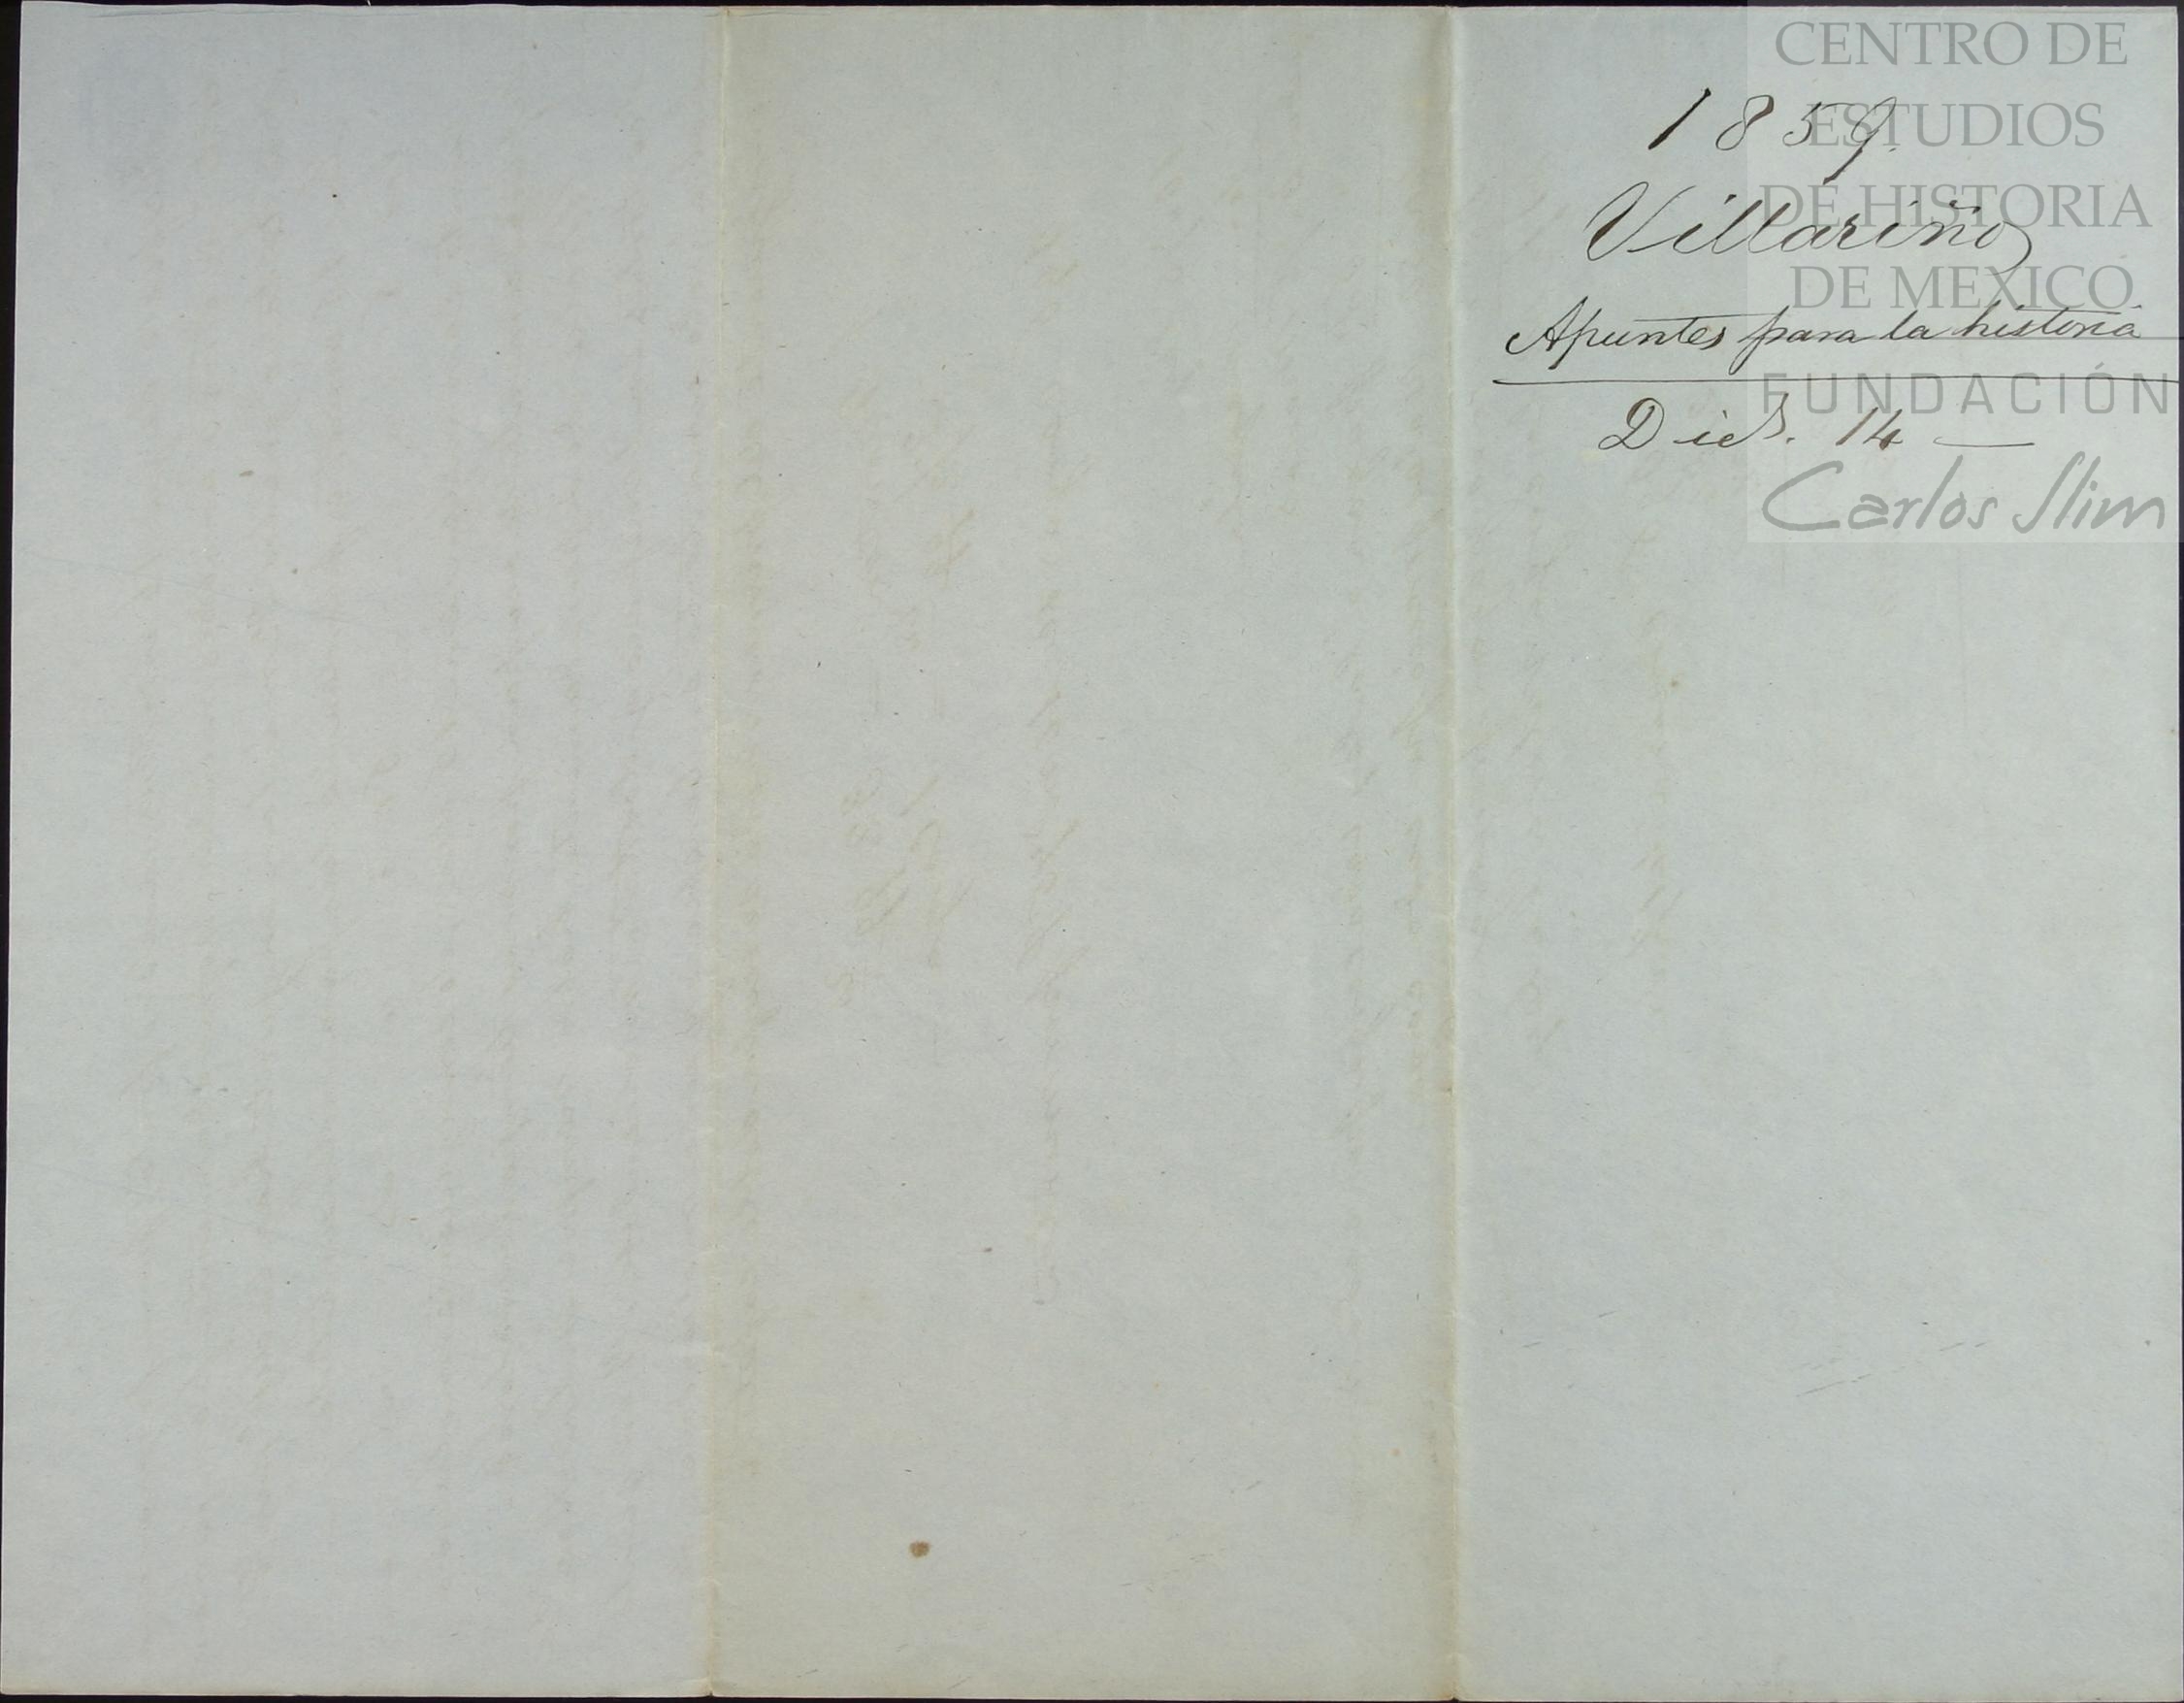 1859.
Villariño
Apuntes para la historia
Dic. 14 —
CENTRO DE
ESTUDIOS
DE HISTORIA
DE MEXICO
FUNDACIÓN
Carlos Slim